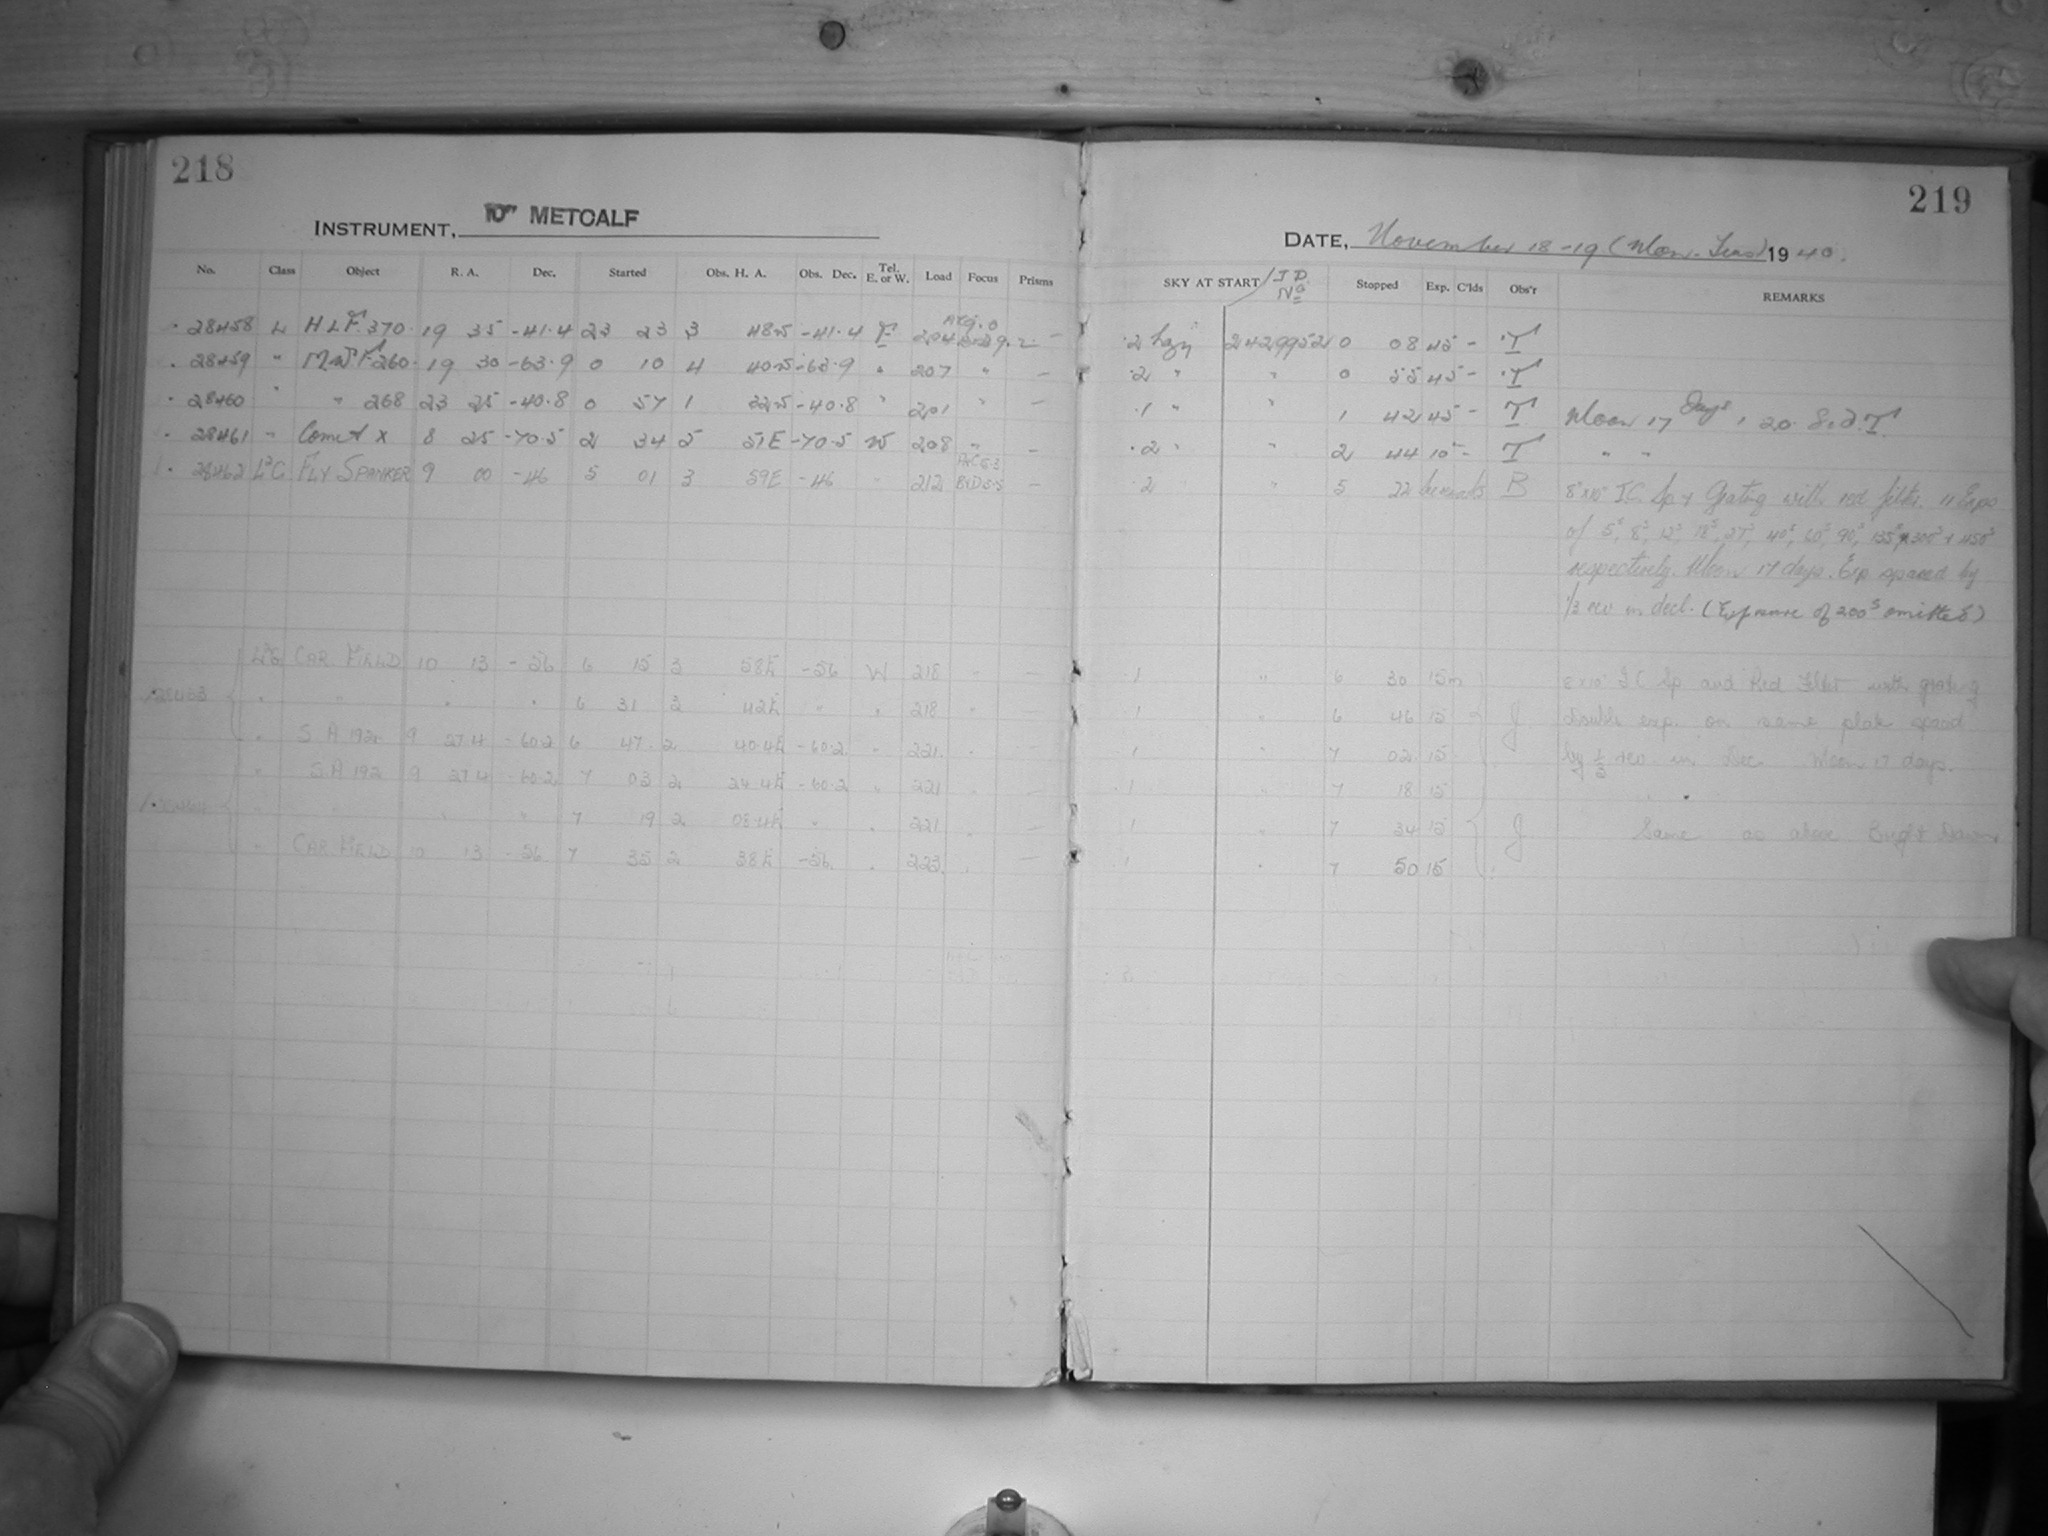 218
INSTRUMENT, 10" METCALF
No. Class Object R. A. Dec. Started Obs. H. A. Obs. Dec. Tel. E. or W. Load Focus Prisms
28458 L HLF.370 19 35 -41.4 23 23 3 48W -41.4 E 204 —
28459 " MWF.260 19 30 -63.9 0 10 4 40W -63.9 " 207 " —
28460 " " 268 23 25 -40.8 0 57 1 32W -40.8 " 201 " —
28461 " Comet X 8 25 -70.5 2 34 5 51E -70.5 W 208 " —
28462 FLY SPANKER 9 00 -46 5 01 3 59E -46 " 212 —
CAR FIELD 10 13 -56 6 15 3 58E -56 W 218 " —
28463 " " " " 6 31 3 42E " " 218 " —
" S A 192 9 27.4 -60.2 6 47 2 40.4E -60.2 " 221 " —
" S.A 192 9 27.4 -60.2 7 03 2 24.4E -60.2 " 221 " —
28464 " " " " 7 19 2 08.4E " " 221 " —
" CAR FIELD 10 13 -56 7 35 2 38E -56 " 223 " —
219
DATE, November 18-19 (Mon-Tues) 1940.
SKY AT START J D No Stopped Exp. C'lds Obs'r REMARKS
2 hazy 2429952 0 08 45 - T
2 " " 0 55 45 - T
1 " " 1 42 45 - T Moon 17 days
2 " " 2 44 10 - T " "
2 " 5 22 B 8"x10" I.C. Sp & Grating with red filter. 11 Exps
of 5s, 8s, 12s, 18s, 27s, 40s, 60s, 90s, 135s, 300s + 450s
respectively. Moon 17 days. Exp spaced by
1/3 rev in decl. (Exposure of 200s omitted)
1 " 6 30 15m 8x10 I C Sp and Red Filter with grating
1 " 6 46 15 J double exp. on same plate spaced
1 " 7 02 15 by 1/3 rev. in Dec. Moon 17 days.
1 " 7 18 15
1 " 7 34 15 J Same as above Bright Dawn
1 " 7 50 15